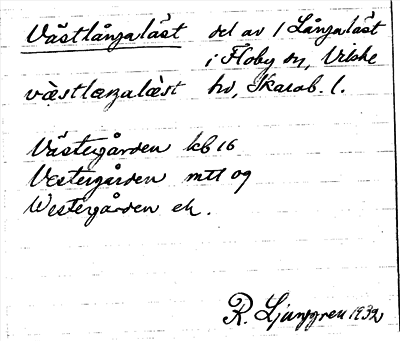 Västlångaläst del av 1 Långaläst
i Floby sn, Vilske
västlaŋalæst hd, Skarab. l.
Västergården kb 16
Vestergården mtl 09
Westergården ek.
R. Ljunggren 1932